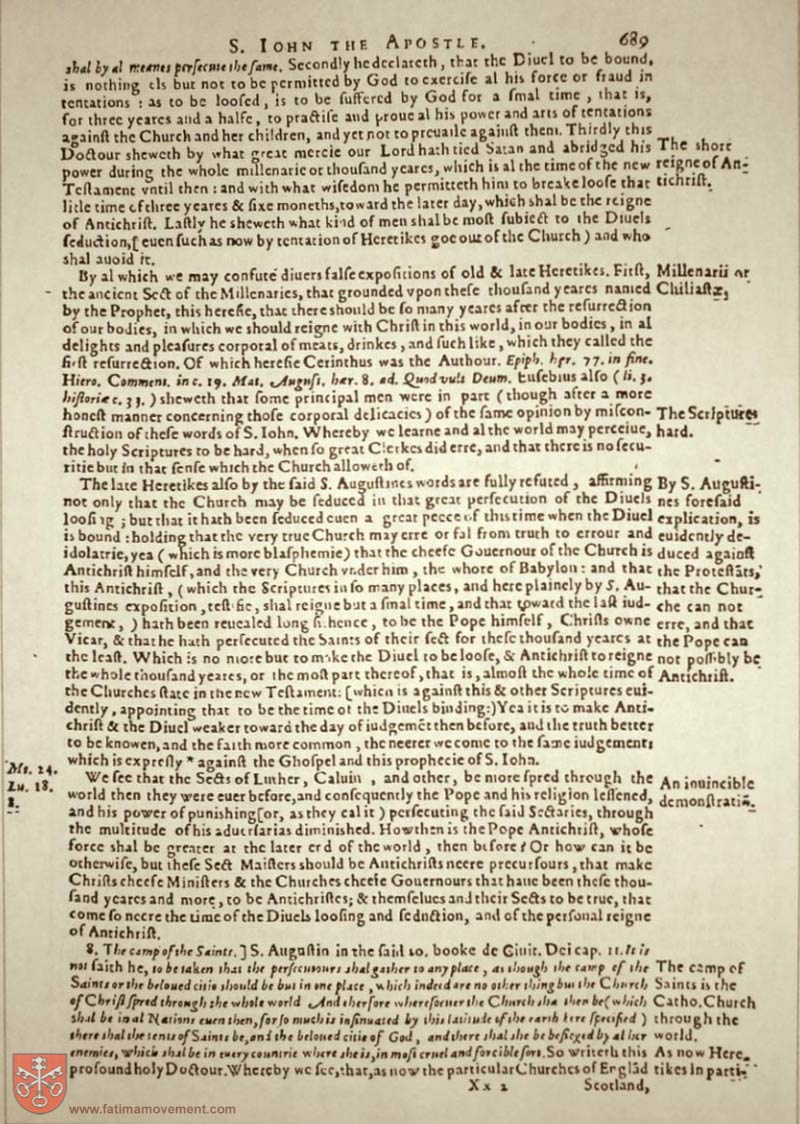 S. IOHN THE APOSTLE. 689
shal by al meanes persecute the same. Secondly he declareth, that the Diuel to be bound,
is nothing els but not to be permitted by God to exercise al his force or fraud in
tentations : as to be loosed, is to be suffered by God for a smal time, that is,
for three yeares and a halfe, to practise and proue al his power and arts of tentations
against the Church and her children, and yet not to preuaile against them. Thirdly this
Doctour sheweth by what great mercie our Lord hath tied Satan and abridged his
power during the whole millenarie or thousand yeares, which is al the time of the new
Testament vntil then : and with what wisedom he permitteth him to breake loose that
litle time of three yeares & sixe moneths, toward the later day, which shal be the reigne
of Antichrist. Lastly he sheweth what kind of men shal be most subiect to the Diuels
seduction, [euen such as now by tentation of Heretikes goe out of the Church) and who
shal auoid it.
The short
reigne of An-
tichrist.
By al which we may confute diuers false expositions of old & late Heretikes. First,
the ancient Sect of the Millenaries, that grounded vpon these thousand yeares named
by the Prophet, this heresie, that there should be so many yeares after the resurrection
of our bodies, in which we should reigne with Christ in this world, in our bodies, in al
delights and pleasures corporal of meats, drinkes, and such like, which they called the
first resurrection. Of which heresie Cerinthus was the Authour. Epiph. hær. 77. in fine.
Hiero. Comment. in c. 19. Mat. August. hær. 8. ad. Quod vult Deum. Eusebius also (li. 3.
historiæ c. 33.) sheweth that some principal men were in part (though after a more
honest manner concerning those corporal delicacies) of the same opinion by miscon-
struction of these words of S. Iohn. Whereby we learne and al the world may perceiue,
the holy Scriptures to be hard, when so great Clerkes did erre, and that there is no secu-
ritie but in that sense which the Church alloweth of.
Millenarii or
Chiliastæ,
The Scriptures
hard.
The late Heretikes also by the said S. Augustines words are fully refuted, affirming
not only that the Church may be seduced in that great persecution of the Diuels
loosing ; but that it hath been seduced euen a great peece of this time when the Diuel
is bound : holding that the very true Church may erre or fal from truth to errour and
idolatrie, yea (which is more blasphemie) that the cheefe Gouernour of the Church is
Antichrist himself, and the very Church vnder him, the whore of Babylon : and that
this Antichrist, (which the Scriptures in so many places, and here plainely by S. Au-
gustines exposition, testifie, shal reigne but a smal time, and that toward the last iud-
gement, ) hath been reuealed long sithence, to be the Pope himself, Christs owne
Vicar, & that he hath persecuted the Saints of their sect for these thousand yeares at
the least. Which is no more but to make the Diuel to be loose, & Antichrist to reigne
the whole thousand yeares, or the most part thereof, that is, almost the whole time of
the Churches state in the new Testament: [which is against this & other Scriptures eui-
dently, appointing that to be the time of the Diuels binding:) Yea it is to make Anti-
christ & the Diuel weaker toward the day of iudgemẽt then before, and the truth better
to be knowen, and the faith more common, the neerer we come to the same iudgement:
which is expresly * against the Ghospel and this prophecie of S. Iohn.
By S. Augusti-
nes foresaid
explication, is
euidently de-
duced against
the Protestãts,
that the Chur-
che can not
erre, and that
the Pope can
not possibly be
Antichrist.
Mt. 24.
Lu. 18.
8.
We see that the Sects of Luther, Caluin, and other, be more spred through the
world then they were euer before, and consequently the Pope and his religion lessened,
and his power of punishing [or, as they cal it) persecuting the said Sectaries, through
the multitude of his aduersarias diminished. How then is the Pope Antichrist, whose
force shal be greater at the later end of the world, then before? Or how can it be
otherwise, but these Sect Maisters should be Antichrists neere precursours, that make
Christs cheefe Ministers & the Churches cheefe Gouernours that haue been these thou-
sand yeares and more, to be Antichristes; & themselues and their Sects to be true, that
come so neere the time of the Diuels loosing and seduction, and of the personal reigne
of Antichrist.
An inuincible
demonstratiõ.
8. The camp of the Saints.] S. Augustin in the said 20. booke de Ciuit. Dei cap. 11. It is
not saith he, to be taken that the persecutours shal gather to any place, as though the camp of the
Saints or the beloued citie should be but in one place, which indeed are no other thing but the Church
of Christ spred through the whole world And therfore wheresoeuer the Church sha then be (which
shal be in al Nations euen then, for so much is insinuated by this latitude of the earth here specified)
there shal the tents of Saints be, and the beloued citie of God, and there shal she be besieged by al her
enemies, which shal be in euery countrie where she is, in most cruel and forcible sort. So writeth this
profound holy Doctour. Whereby we see, that, as now the particular Churches of Englãd
The camp of
Saints is the
Catho. Church
through the
world.
As now Here-
tikes in parti-
Xx 2 Scotland,
www.fatimamovement.com